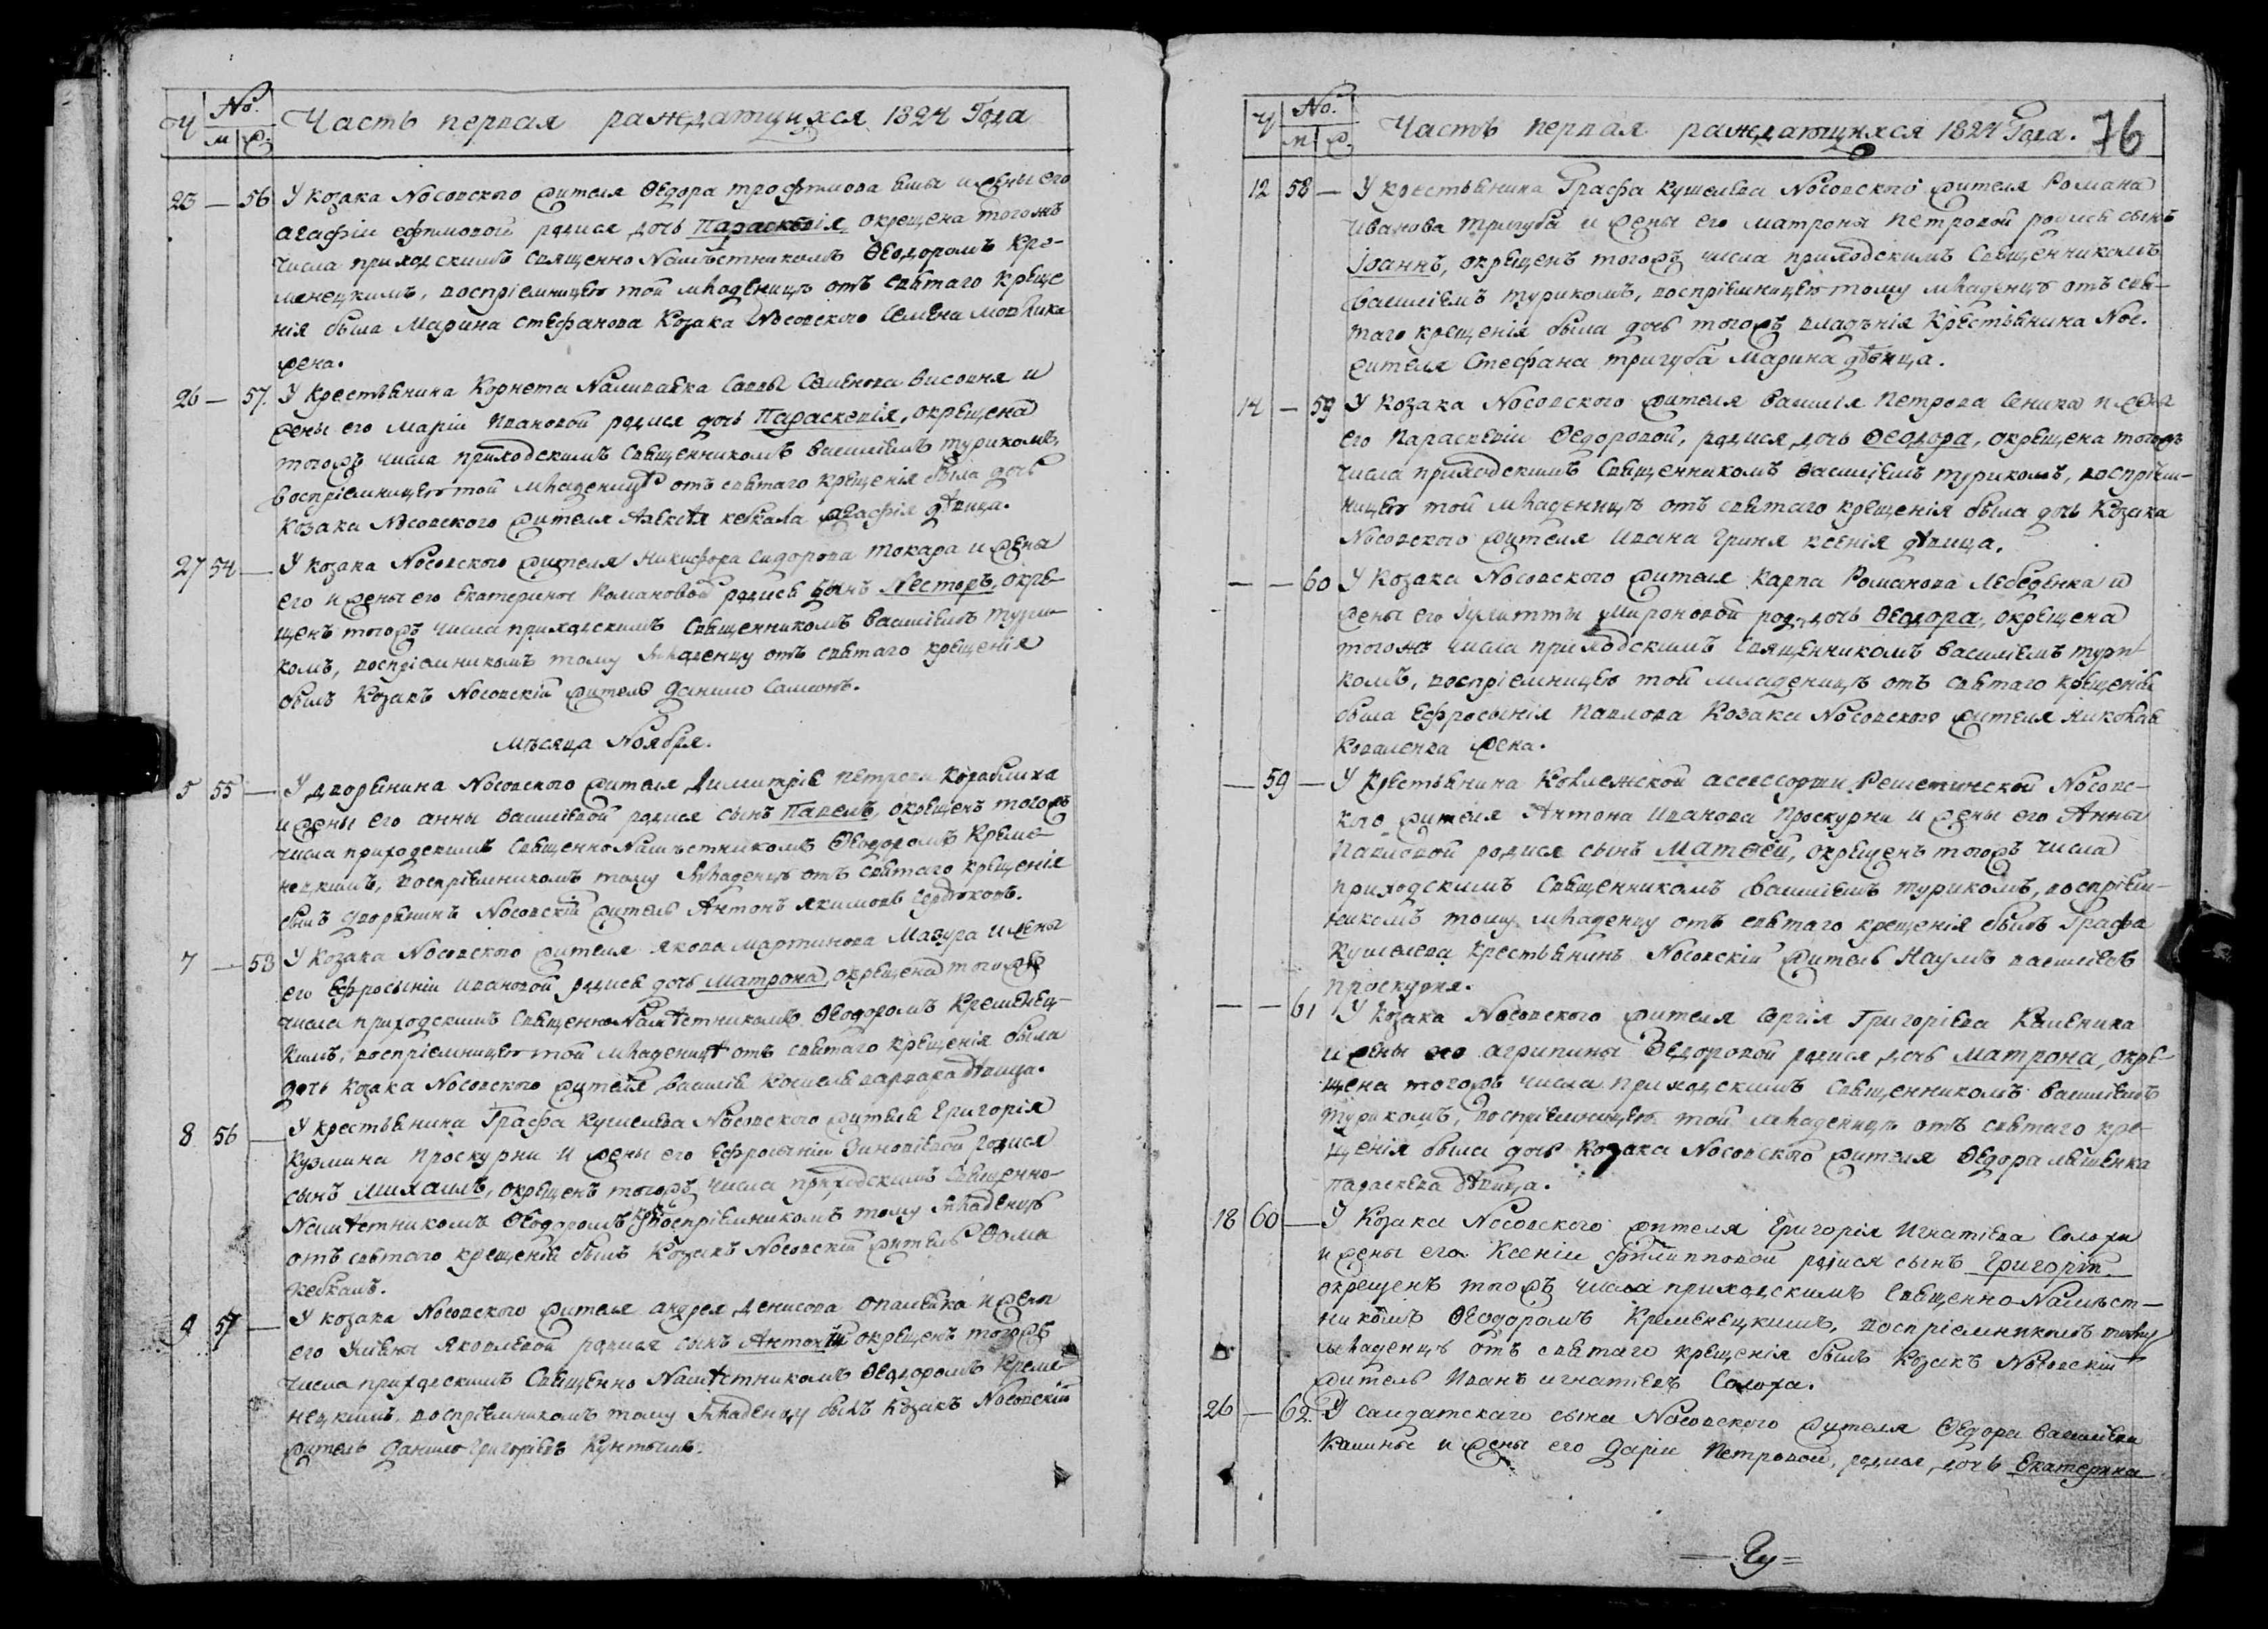 Ч №. м ж. Часть первая раждающихся 1824 Года
23 — 56 У козака Носовского жителя Ѳедора трофимова и жены его
агафіи ефимовой родися дочь Параскевія, окрещена тогожъ
числа приходскимъ Священно Намѣстникомъ Ѳеодоромъ Кре-
менецкимъ, воспріемницею той младеницѣ отъ святаго креще
нія была Марина Стефанова Козака Носовского Семена
жена.
26 — 57. У Крестьянина Корнета Саввы Семенова и
жены его Маріи Ивановой родися дочь Параскевія, окрещена
тогожъ числа приходскимъ Священникомъ Василіемъ туриомъ,
воспріемницею той младеницѣ отъ святаго крещенія была дочь
Козака Носовского жителя Алексѣя кебкала Агафія дѣвица.
27 54 — У Козака Носовского жителя Никифора Сидорова токара и жены
его и жены его Екатерины Романовой родися сынъ Несторъ, окре-
щенъ тогожъ числа приходскимъ Священникомъ Василіемъ тури-
комъ, воспріемникомъ тому младенцу отъ святаго крещенія
былъ Козакъ Носовскій житель Данило
Мѣсяца Ноября.
5 55 — У дворянина Носовского жителя Димитрія Петрова
и жены его анны Василіевой родися сынъ Павелъ, окрещенъ тогожъ
числа приходскимъ Священно Намѣстникомъ Ѳеодоромъ Креме-
нецкимъ, воспріемникомъ тому младенцѣ отъ святаго крещенія
былъ дворянинъ Носовскій житель Антонъ Якимовъ
7 — 58 У Козака Носовского жителя Якова Мартинова Мазура и жены
его Ефросыніи Ивановой родися дочь Матрона, окрещена тогожъ
числа приходскимъ Священно Намѣстникомъ Ѳеодоромъ Кременец-
кимъ, воспріемницею той младеницѣ отъ святаго крещенія была
дочь козака Носовского жителя Василія варвара дѣвица.
8 56 — У крестьянина Графа Кушелева Носовского жителя Григорія
Кузмина Проскурни и жены его Ефросыніи Зиновіевой родися
сынъ Михаилъ, окрещенъ тогожъ числа приходскимъ Священно-
Намѣстникомъ Ѳеодоромъ воспріемникомъ тому младенцѣ
отъ святаго крещенія былъ Козакъ Носовскій житель Ѳома
Кебкалъ.
9 57 — У козака Носовского жителя андрея Денисова и жены
его Яковлевой родися сынъ Антоній окрещенъ тогожъ
числа приходскимъ Священно Намѣстникомъ Ѳеодоромъ Креме
нецкимъ, воспріемникомъ тому младенцу былъ Козакъ Носовскій
житель Данило Григоріевъ
Ч №. м ж. Часть первая раждающихся 1824 Года. 76
12 58 — У крестьянина Графа Кушелева Носовского жителя Романа
Иванова тригуба и жены его Матроны Петровой родися сынъ
Іоаннъ, окрещенъ тогожъ числа приходскимъ Священникомъ
Василіемъ туриомъ, воспріемницею тому младенцѣ отъ свя-
таго крещенія была дочь тогожъ владѣнія Крестьянина Нос.
жителя Стефана тригуба Марина дѣвица.
14 — 59 У Козака Носовского жителя Василія Петрова Сеника и жены
его Параскевіи Ѳедоровой, родися дочь Ѳеодора, окрещена тогожъ
числа приходскимъ Священникомъ Василіемъ туриомъ, воспріем-
ницею той младеницѣ отъ святаго крещенія была дочь Козака
Носовского жителя Ивана Гриня Ксенія дѣвица.
— — 60 У Козака Носовского жителя Карпа Романова Лебеденка и
жены его Іулитты Мироновой род. дочь Ѳеодора, окрещена
тогожъ числа приходскимъ Священникомъ Василіемъ тури
комъ, воспріемницею той младеницѣ отъ святаго крещенія
была Ефросынія Павлова Козака Носовского жителя Николая
Коваленка жена.
— 59 — У Крестьянина Колежской асессорши Решетинской Носовс-
кого жителя Антона Иванова Проскурни и жены его Анны
Павловой родися сынъ Матѳей, окрещенъ тогожъ числа
приходскимъ Священникомъ Василіемъ туриомъ, воспріем-
никомъ тому младенцу отъ святаго крещенія былъ Графа
Кушелева Крестьянинъ Носовскій житель Наумъ Василіевъ
Проскурня.
— — 61 У Козака Носовского жителя Сергія Григоріева Каленика
и жены его агрипины Ѳедоровой родися дочь Матрона, окре-
щена тогожъ числа приходскимъ Священникомъ Василіемъ
туриомъ, воспріемницею той младеницѣ отъ святаго кре-
щенія была дочь Козака Носовского жителя Ѳедора
параскева дѣвица.
18 60 — У Козака Носовского жителя Григорія Игнатіева Солохи
и жены его Ксеніи филипповой родися сынъ Григорій
окрещенъ тогожъ числа приходскимъ Священно-Намѣст-
никомъ Ѳеодоромъ Кременецкимъ, воспріемникомъ тому
младенцѣ отъ святаго крещенія былъ Козакъ Носовскій
житель Иванъ игнатіевъ Солоха.
26 — 62. У салдатскаго сына Носовского жителя Ѳедора Василіева
Калины и жены его Даріи Петровой, родися дочь Екатерина